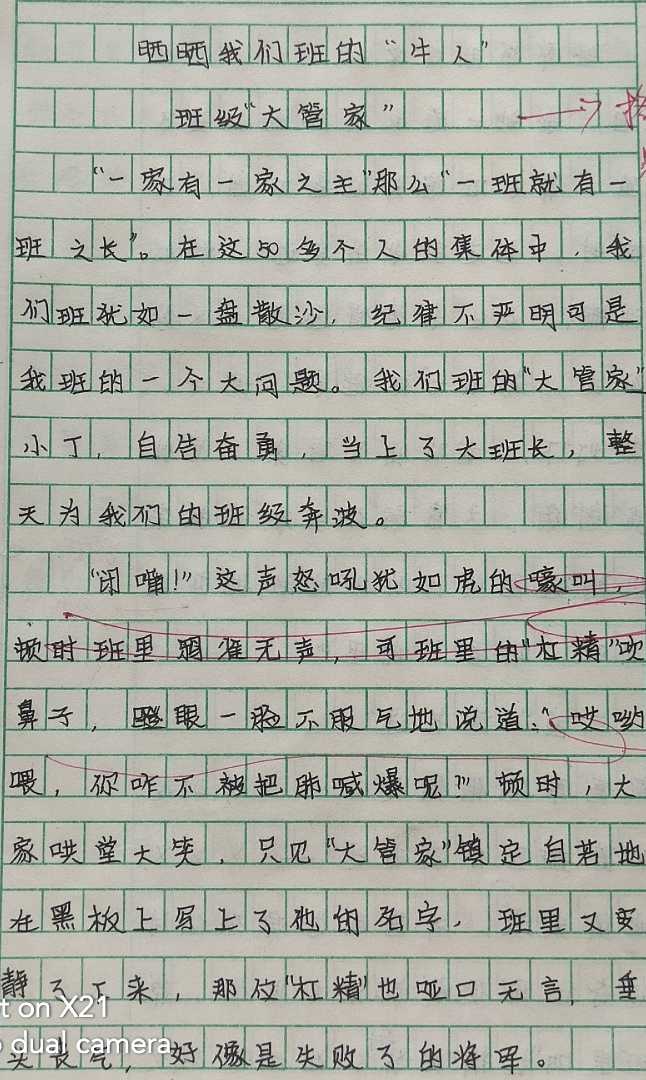 晒晒我们班的“牛人”
班级“大管家”
“一家有一家之主”那么“一班就有一
班之长”。在这50多个人的集体中,我
们班犹如一盘散沙,纪律不严明可是
我班的一个大问题。我们班的“大管家”
小丁,自告奋勇,当上了大班长,整
天为我们的班级奔波。
“闭嘴!”这声怒吼犹如虎的嚎叫,
顿时班里鸦雀无声,可班里的“杠精”吹
鼻子,瞪眼一脸不服气地说道:“哎哟
喂,你咋不被把肺喊爆呢!”顿时,大
家哄堂大笑,只见“大管家”镇定自若地
在黑板上写上了他的名字,班里又安
静了下来,那位“杠精”也哑口无言,垂
头丧气,好像是失败了的将军。
t on X21
dual camera